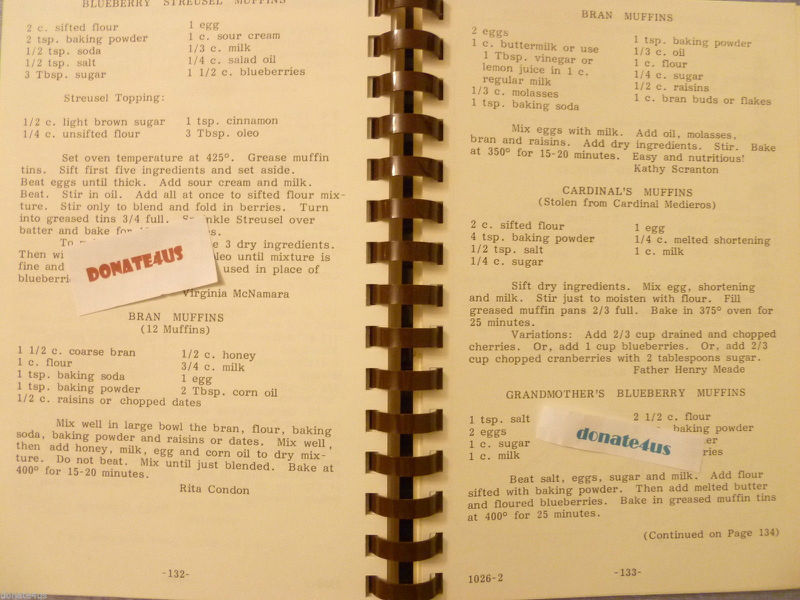 BLUEBERRY STREUSEL MUFFINS
2 c. sifted flour
2 tsp. baking powder
1/2 tsp. soda
1/2 tsp. salt
3 Tbsp. sugar
1 egg
1 c. sour cream
1/3 c. milk
1/4 c. salad oil
1 1/2 c. blueberries
Streusel Topping:
1/2 c. light brown sugar
1/4 c. unsifted flour
1 tsp. cinnamon
3 Tbsp. oleo
Set oven temperature at 425°. Grease muffin
tins. Sift first five ingredients and set aside.
Beat eggs until thick. Add sour cream and milk.
Beat. Stir in oil. Add all at once to sifted flour mix-
ture. Stir only to blend and fold in berries. Turn
into greased tins 3/4 full. Streusel over
batter and bake for
To 3 dry ingredients.
Then oleo until mixture is
fine and used in place of
DONATE4US
Virginia McNamara
BRAN MUFFINS
(12 Muffins)
1 1/2 c. coarse bran
1 c. flour
1 tsp. baking soda
1 tsp. baking powder
1/2 c. raisins or chopped dates
1/2 c. honey
3/4 c. milk
1 egg
2 Tbsp. corn oil
Mix well in large bowl the bran, flour, baking
soda, baking powder and raisins or dates. Mix well,
then add honey, milk, egg and corn oil to dry mix-
ture. Do not beat. Mix until just blended. Bake at
400° for 15-20 minutes.
Rita Condon
-132-
BRAN MUFFINS
2 eggs
1 c. buttermilk or use
1 Tbsp. vinegar or
lemon juice in 1 c.
regular milk
1/3 c. molasses
1 tsp. baking soda
1 tsp. baking powder
1/3 c. oil
1 c. flour
1/4 c. sugar
1/2 c. raisins
1 c. bran buds or flakes
Mix eggs with milk. Add oil, molasses,
bran and raisins. Add dry ingredients. Stir. Bake
at 350° for 15-20 minutes. Easy and nutritious!
Kathy Scranton
CARDINAL'S MUFFINS
(Stolen from Cardinal Medieros)
2 c. sifted flour
4 tsp. baking powder
1/2 tsp. salt
1/4 c. sugar
1 egg
1/4 c. melted shortening
1 c. milk
Sift dry ingredients. Mix egg, shortening
and milk. Stir just to moisten with flour. Fill
greased muffin pans 2/3 full. Bake in 375° oven for
25 minutes.
Variations: Add 2/3 cup drained and chopped
cherries. Or, add 1 cup blueberries. Or, add 2/3
cup chopped cranberries with 2 tablespoons sugar.
Father Henry Meade
GRANDMOTHER'S BLUEBERRY MUFFINS
1 tsp. salt
2 eggs
1 c. sugar
1 c. milk
2 1/2 c. flour
baking powder
donate4us
Beat salt, eggs, sugar and milk. Add flour
sifted with baking powder. Then add melted butter
and floured blueberries. Bake in greased muffin tins
at 400° for 25 minutes.
(Continued on Page 134)
1026-2
-133-
donate4us